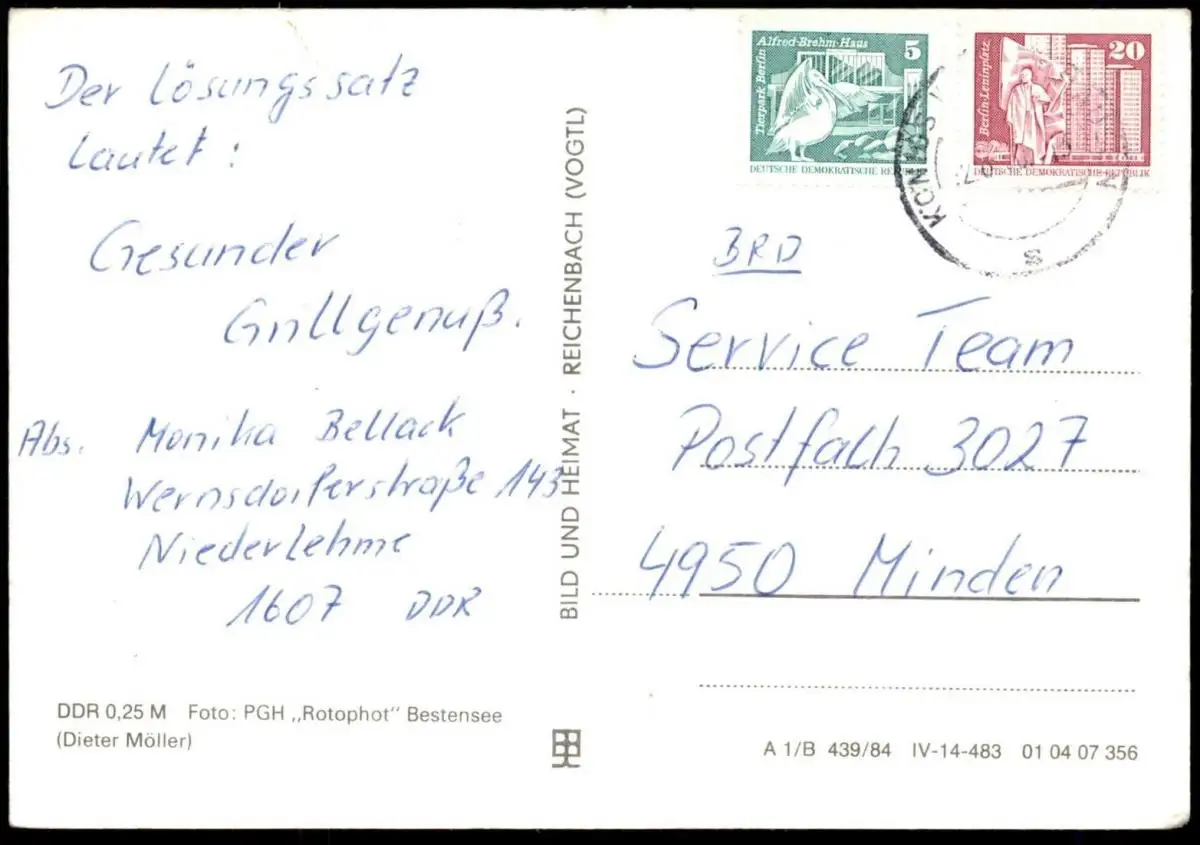 Der Lösungssatz
Lautet:
Gesunder
Grillgenuß.
Abs. Monika Bellack
Wernsdorferstraße 143
Niederlehme
1607 DDR
DDR 0,25 M Foto: PGH „Rotophot" Bestensee
(Dieter Möller)
BILD UND HEIMAT · REICHENBACH (VOGTL)
Tierpark Berlin
Alfred-Brehm-Haus
5
DEUTSCHE DEMOKRATISCHE REPUBLIK
Berlin-Leninplatz
20
DEUTSCHE DEMOKRATISCHE REPUBLIK
s
BRD
Service Team
Postfach 3027
4950 Minden
A 1/B 439/84 IV-14-483 01 04 07 356